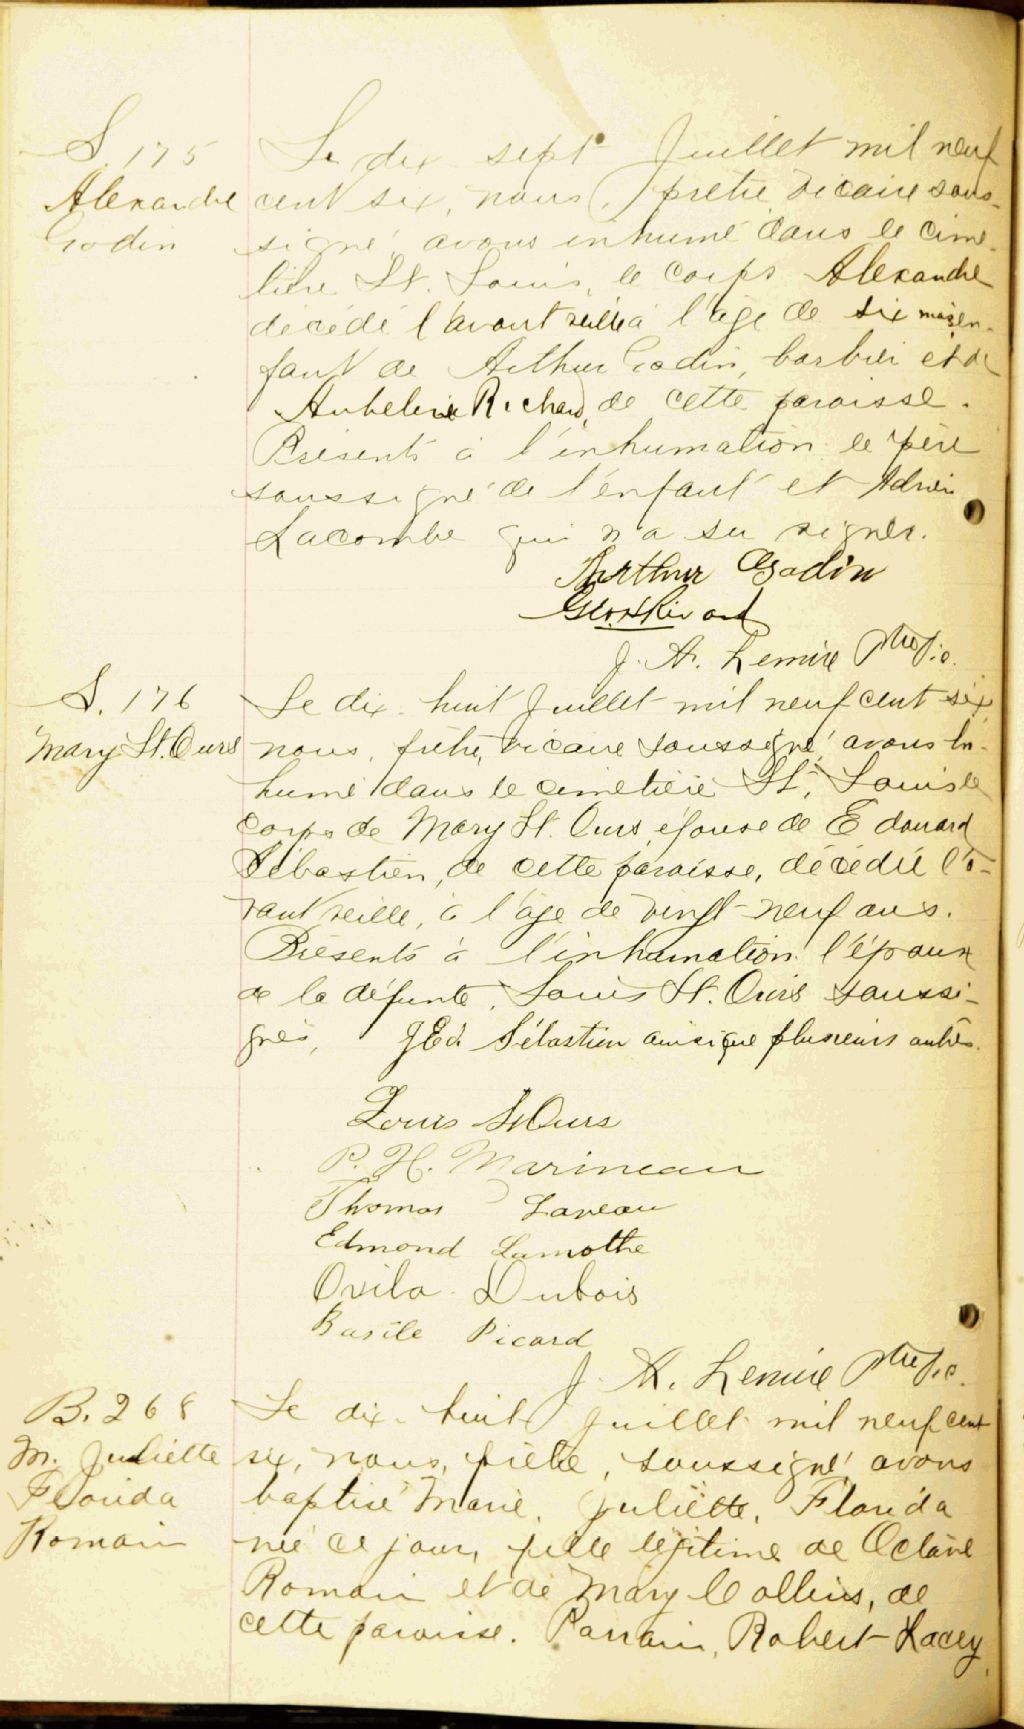 S. 175
Alexandre
Godin
Le dix sept Juillet mil neuf
cent six, nous, prêtre vicaire sous-
signé, avons inhumé dans le cime-
tière St. Louis, le corps Alexandre
décédé l'avant veille à l'âge de six mois en-
fant de Arthur Godin, barbier et de
Richard, de cette paroisse.
Présents à l'inhumation le père
soussigné de l'enfant et Adrien
Lacombe qui n'a su signer.
Arthur Godin
J. A. Lemire Ptre Vic.
S. 176
Mary St. Ours
Le dix-huit Juillet mil neuf cent six
nous, prêtre, vicaire soussigné, avons in-
humé dans le cimetière St. Louis le
corps de Mary St. Ours, épouse de Edouard
Sébastien, de cette paroisse, décédée l'a-
vant veille, à l'âge de vingt-neuf ans.
Présents à l'inhumation l'époux
de la défunte, Louis St. Ours soussi-
gnés, J Ed. Sébastien ainsi que plusieurs autres.
Louis St Ours
P. H. Marineau
Thomas Laveau
Edmond Lamothe
Ovila Dubois
Basile Picard
J. A. Lemire Ptre Vic.
B. 268
M. Juliette
Florida
Romain
Le dix-huit Juillet mil neuf cent
six, nous, prêtre, soussigné, avons
baptisé Marie, Juliette, Florida
née ce jour, fille légitime de Octave
Romain et de Mary Collins, de
cette paroisse. Parrain, Robert Lacey,